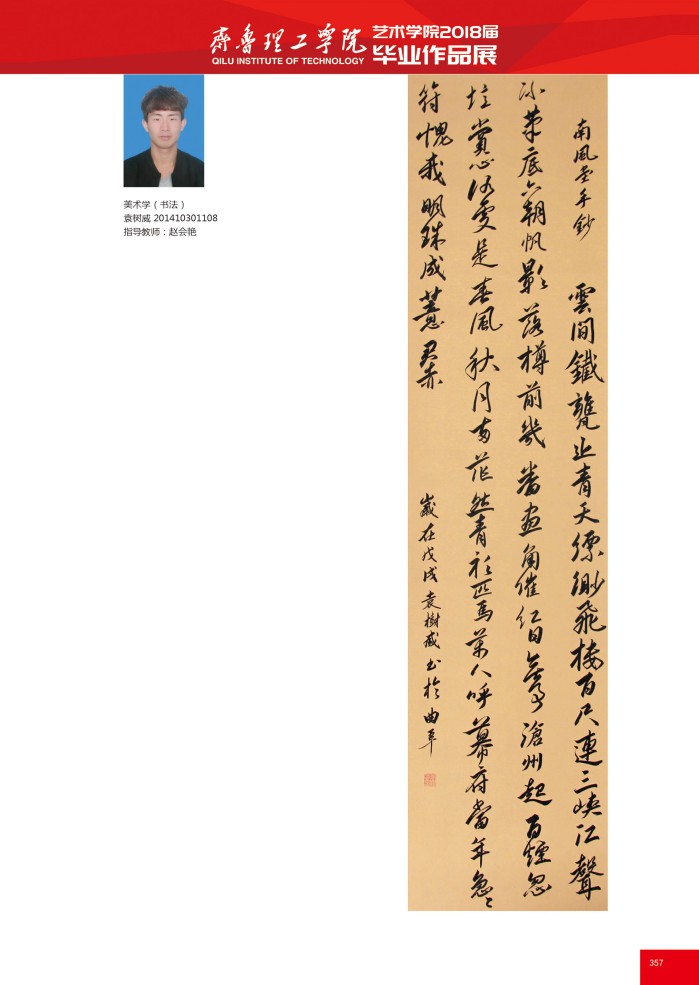 齊魯理工學院
QILU INSTITUTE OF TECHNOLOGY
艺术学院2018届
毕业作品展
美术学(书法)
袁树威 201410301108
指导教师:赵会艳
南風堂手鈔 雲間鐵甕青天縹緲飛樓百尺連三峽江聲
底六朝帆影落樽前幾番畫角催紅日無事滄州起百煙忽
賞心何處是春風秋月兩茫然青衫匹馬萬人呼幕府當年急々
符愧我明珠成薏君赤
歲在戊戌袁樹威書於曲阜
357